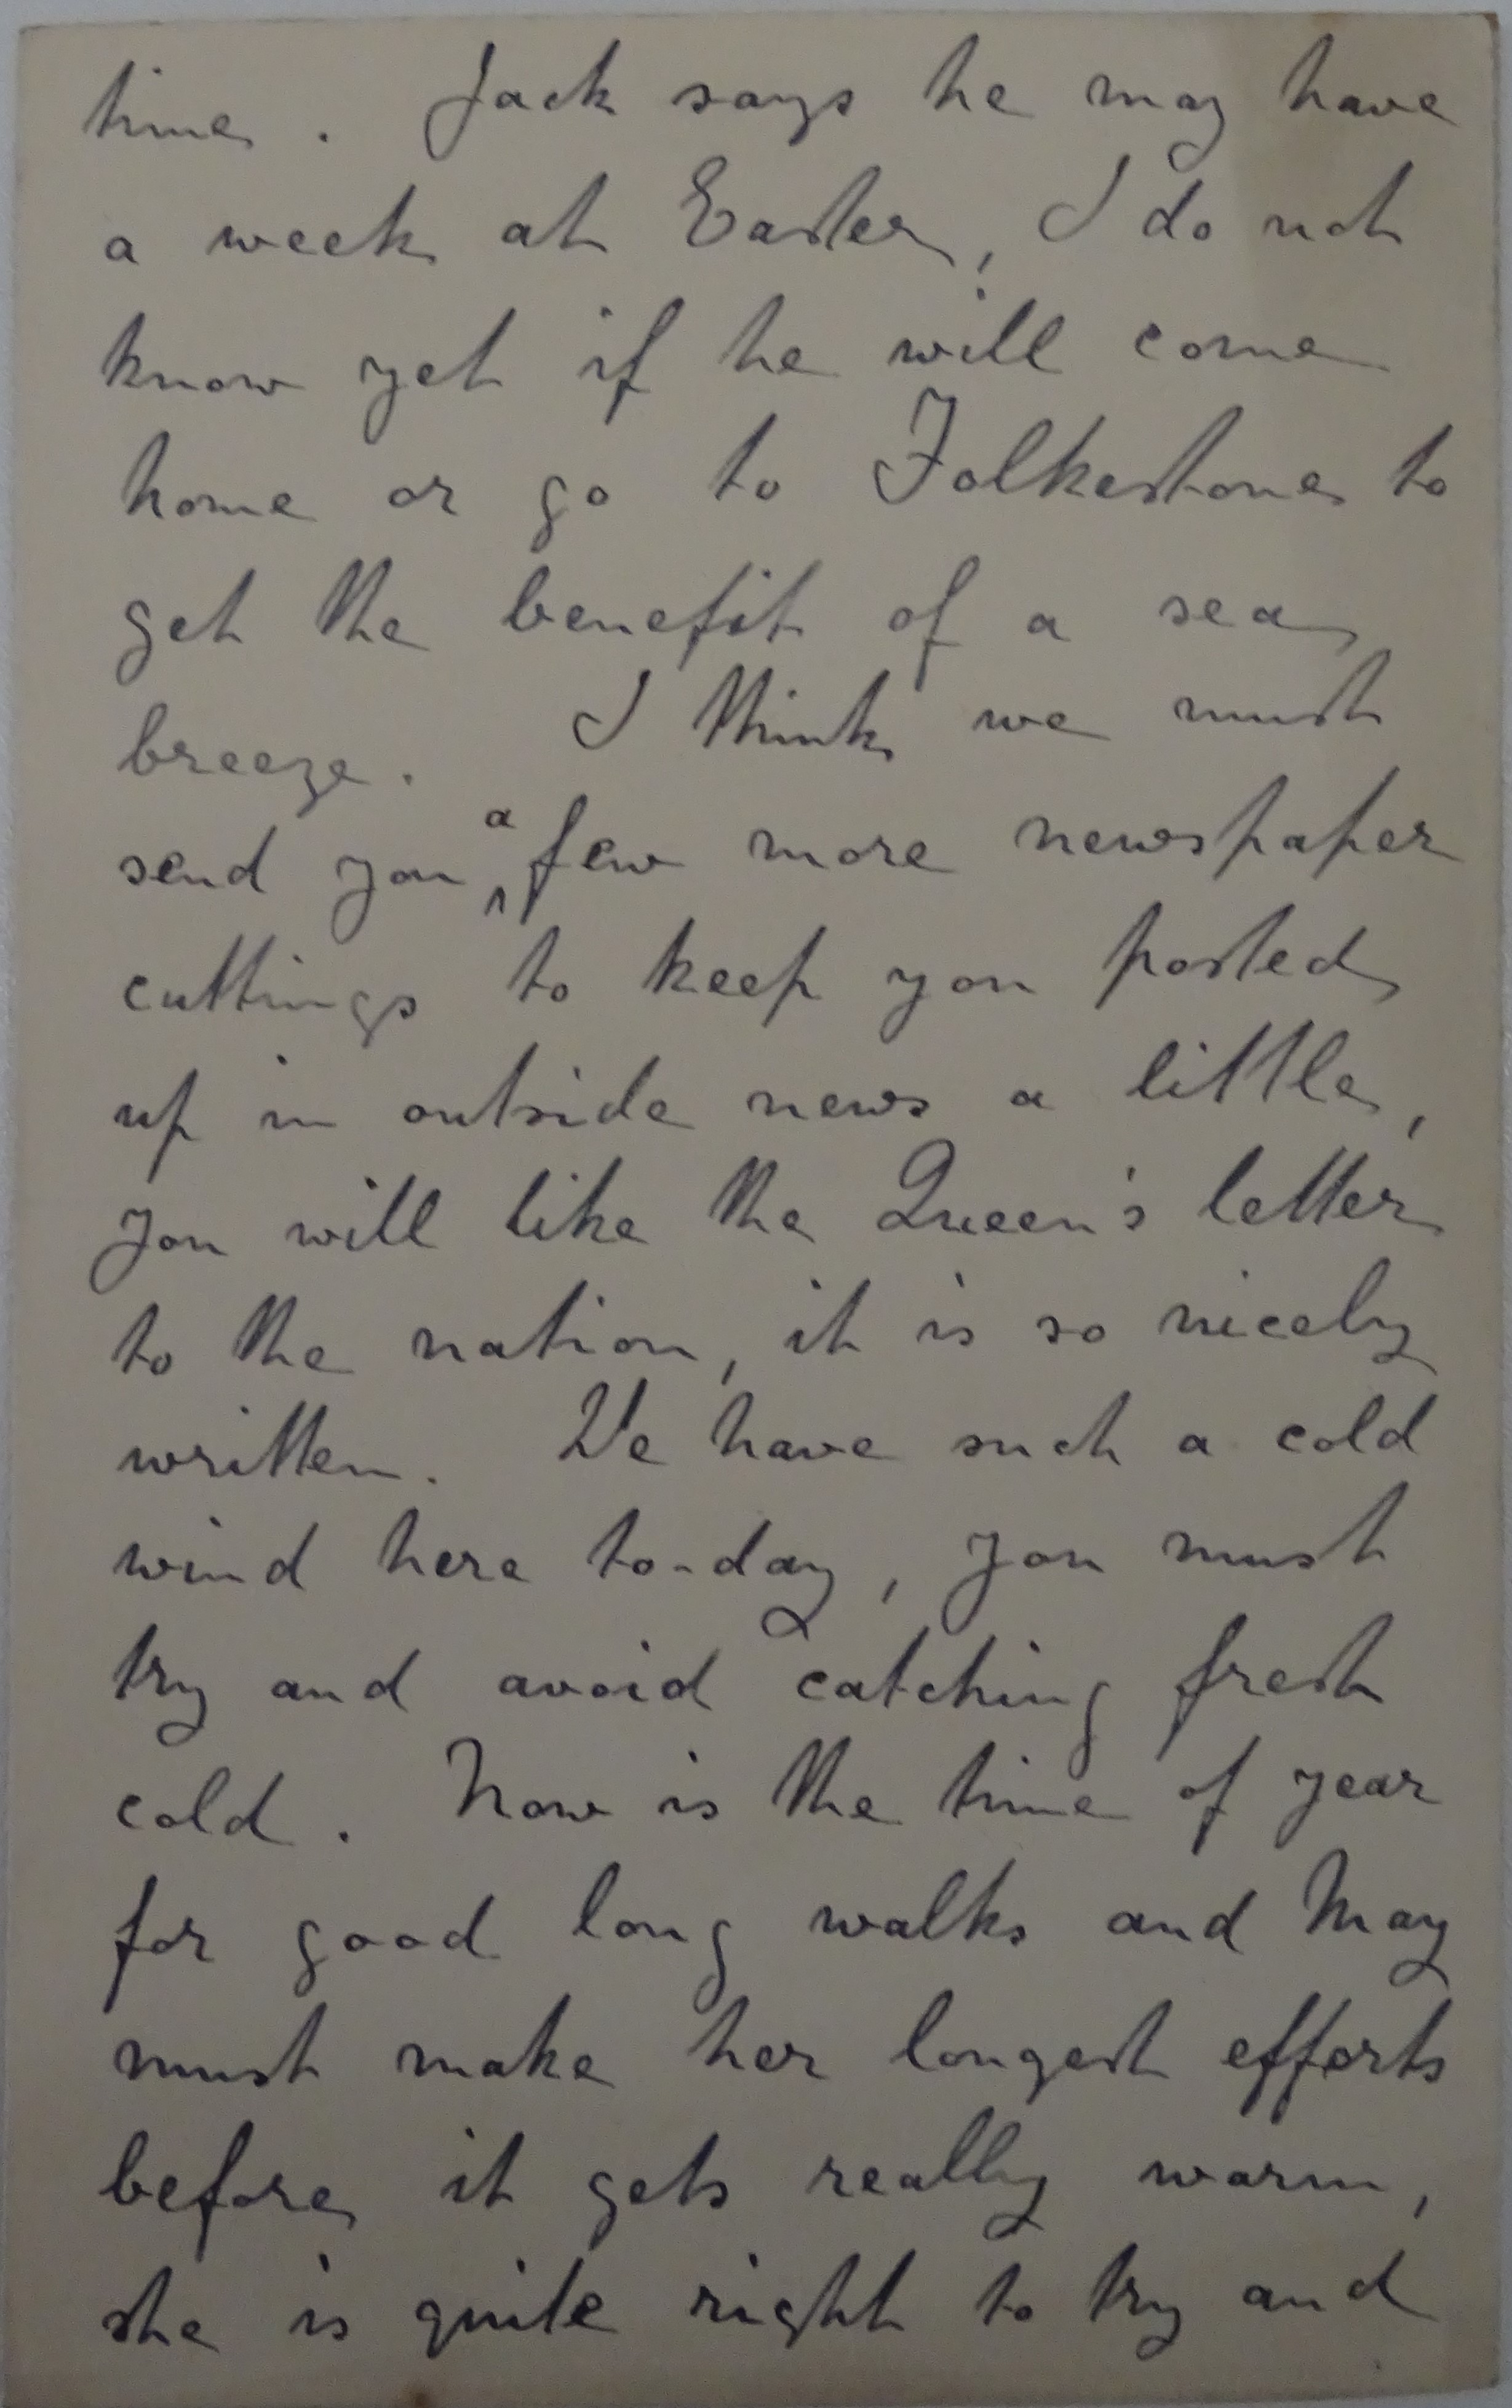 time. Jack says he may have
a week at Easter, I do not
know yet if he will come
home or go to Folkestone to
get the benefit of a sea
breeze. I think we must
send you a few more newspaper
cuttings to keep you posted
up in outside news a little,
you will like the Queen's letter
to the nation, it is so nicely
written. We have such a cold
wind here to-day, you must
try and avoid catching fresh
cold. Now is the time of year
for good long walks and May
must make her longest efforts
before it gets really warm,
she is quite right to try and